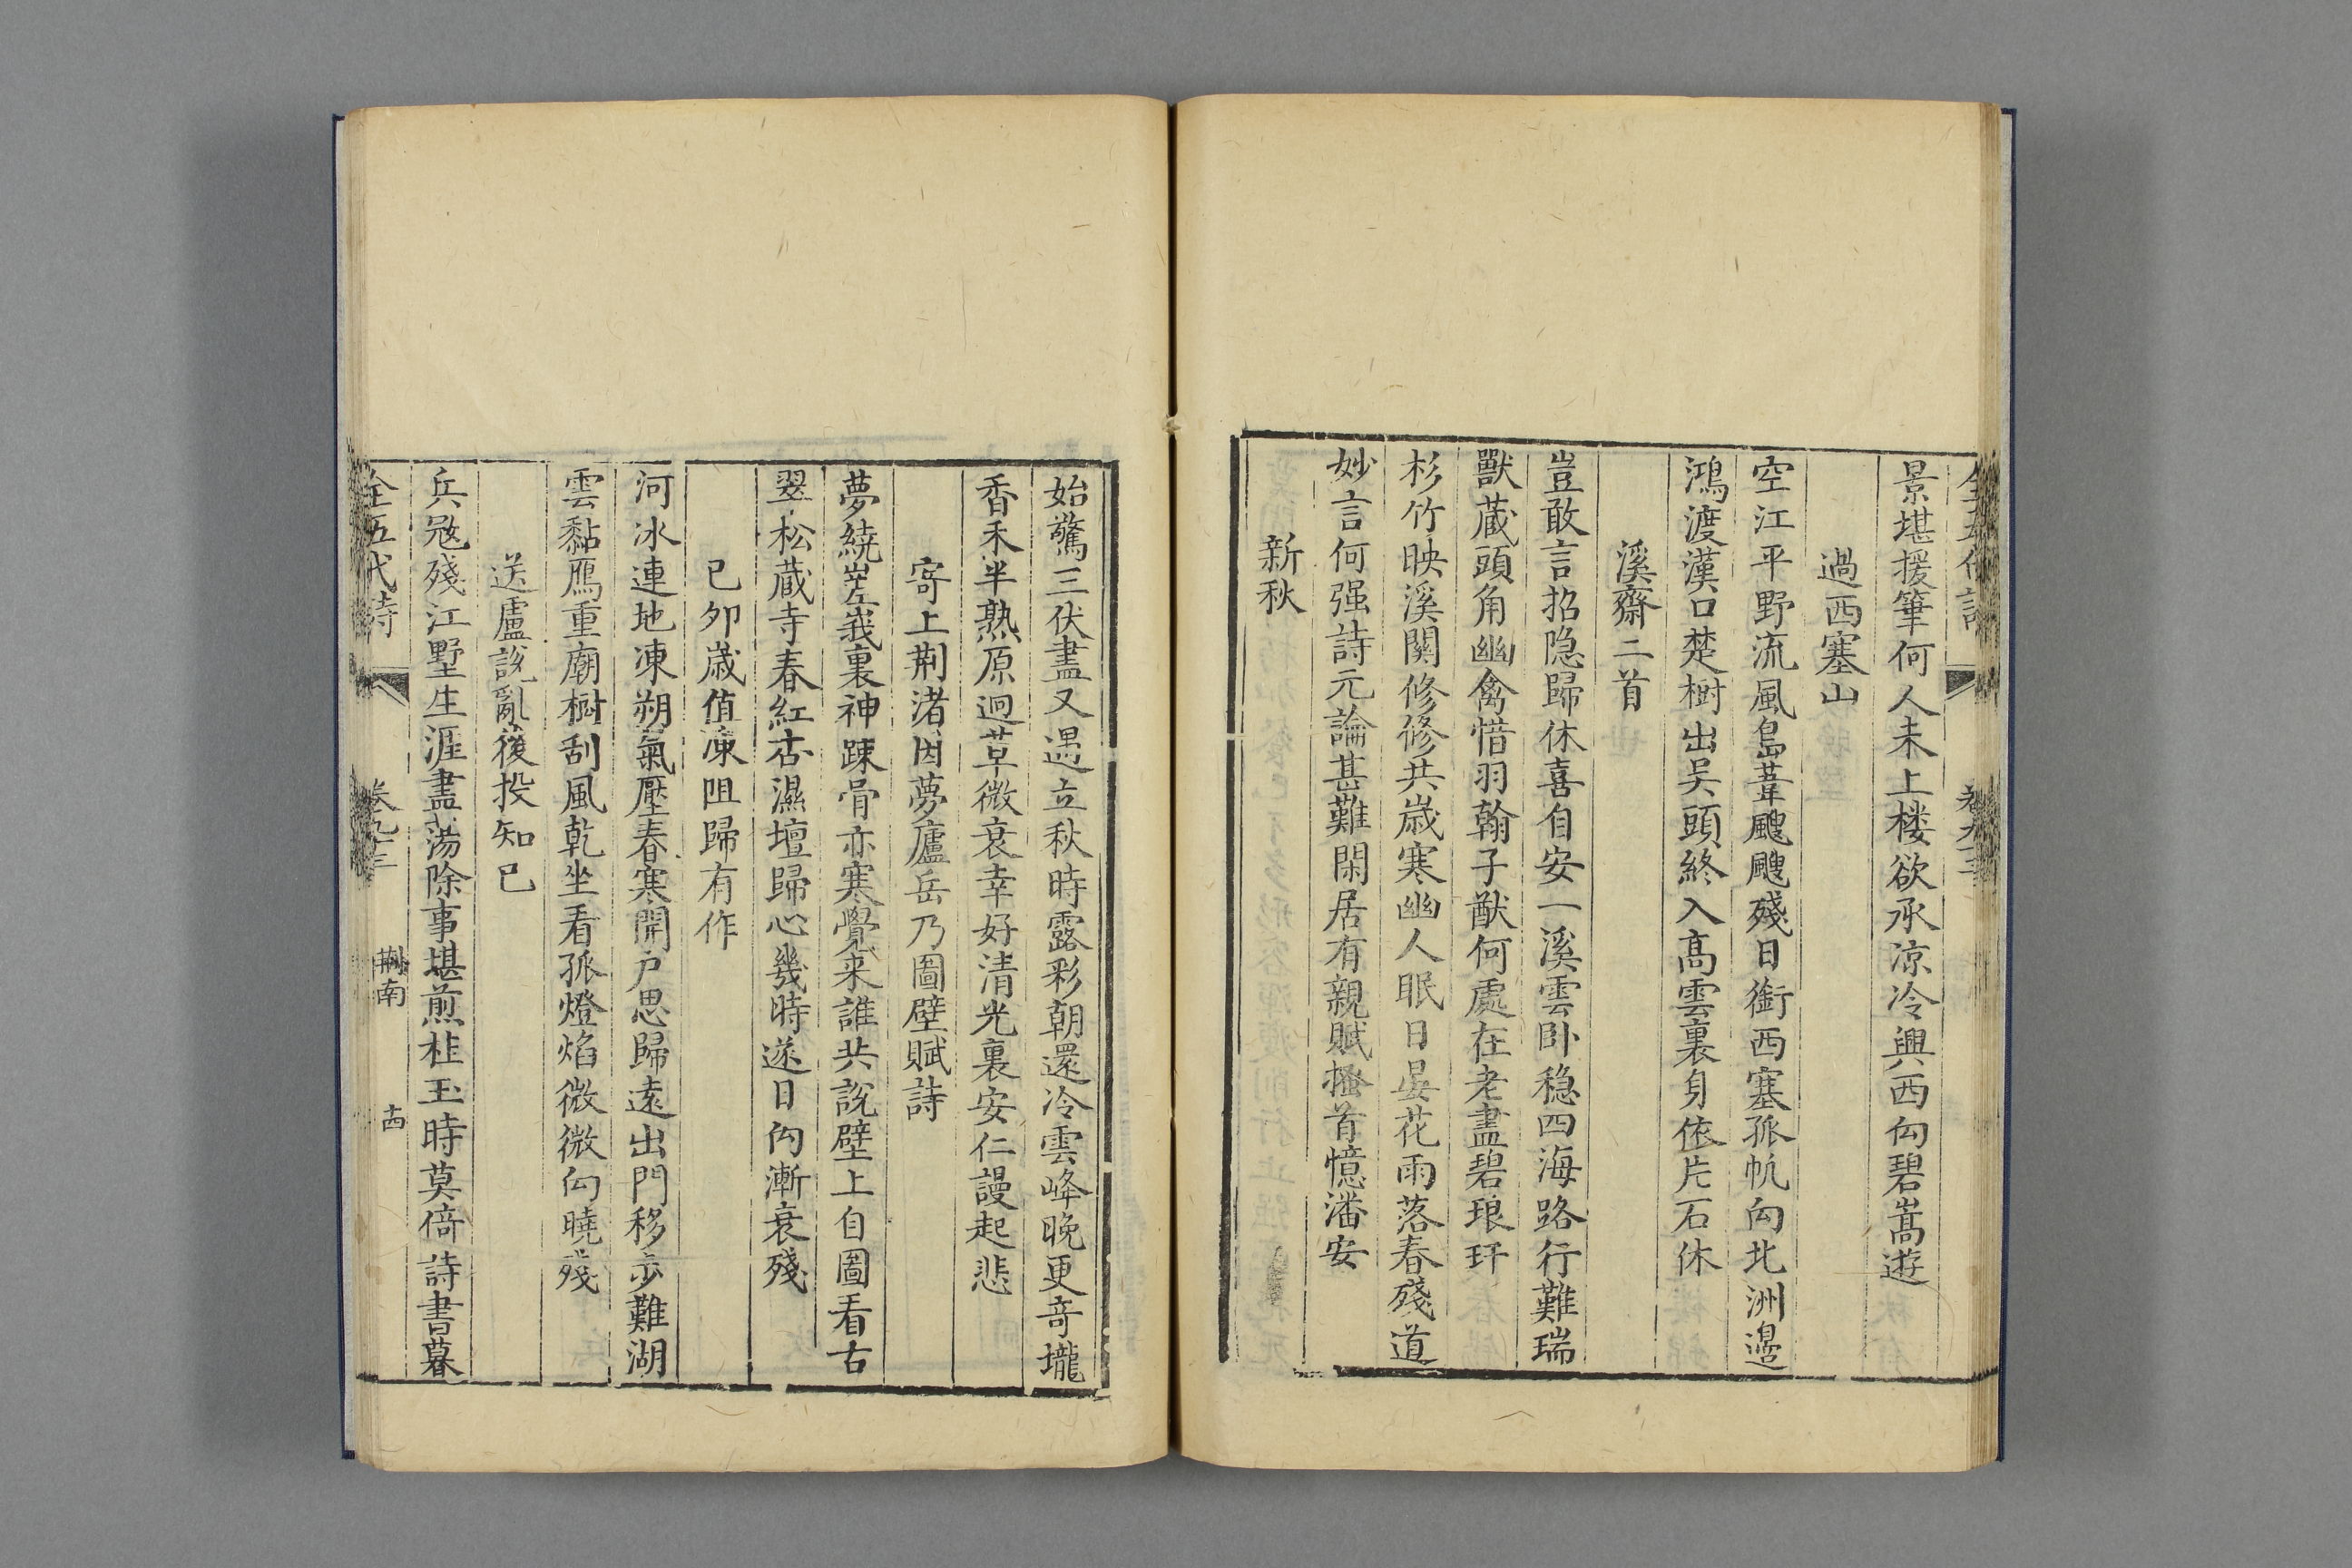 全五代詩 卷九十三
景堪援筆何人未上楼欲承凉冷興西向碧嵩遊
過西塞山
空江平野流風島葦颼颼殘日銜西塞孤帆向北洲邊
鴻渡漢口楚樹出吴頭終入髙雲裏身依片石休
溪齋二首
豈敢言招隐歸休喜自安一溪雲卧稳四海路行難瑞
獸蔵頭角幽禽惜羽翰子猷何處在老盡碧琅玕
杉竹映溪關修修共嵗寒幽人眠日晏花雨落春殘道
妙言何强詩元論甚難閑居有親賦搔首憶潘安
新秋
始驚三伏盡又遇立秋時露彩朝還冷雲峰晚更奇壠
香禾半熟原迥草微衰幸好清光裏安仁謾起悲
寄上荆渚因夢廬岳乃圖壁賦詩
夢繞嵳峩裏神踈骨亦寒覺来誰共說壁上自圖看古
翠松蔵寺春紅杏濕壇歸心幾時遂日向漸衰殘
已夘嵗值凍阻歸有作
河冰連地凍朔氣壓春寒開户思歸遠出門移步難湖
雲黏鴈重廟樹刮風乾坐看孤燈焰微微向曉殘
送盧說亂後投知已
兵㓂殘江墅生涯盡蕩除事堪煎桂玉時莫倚詩書暮
全五代詩 卷九十三 荆南 十四